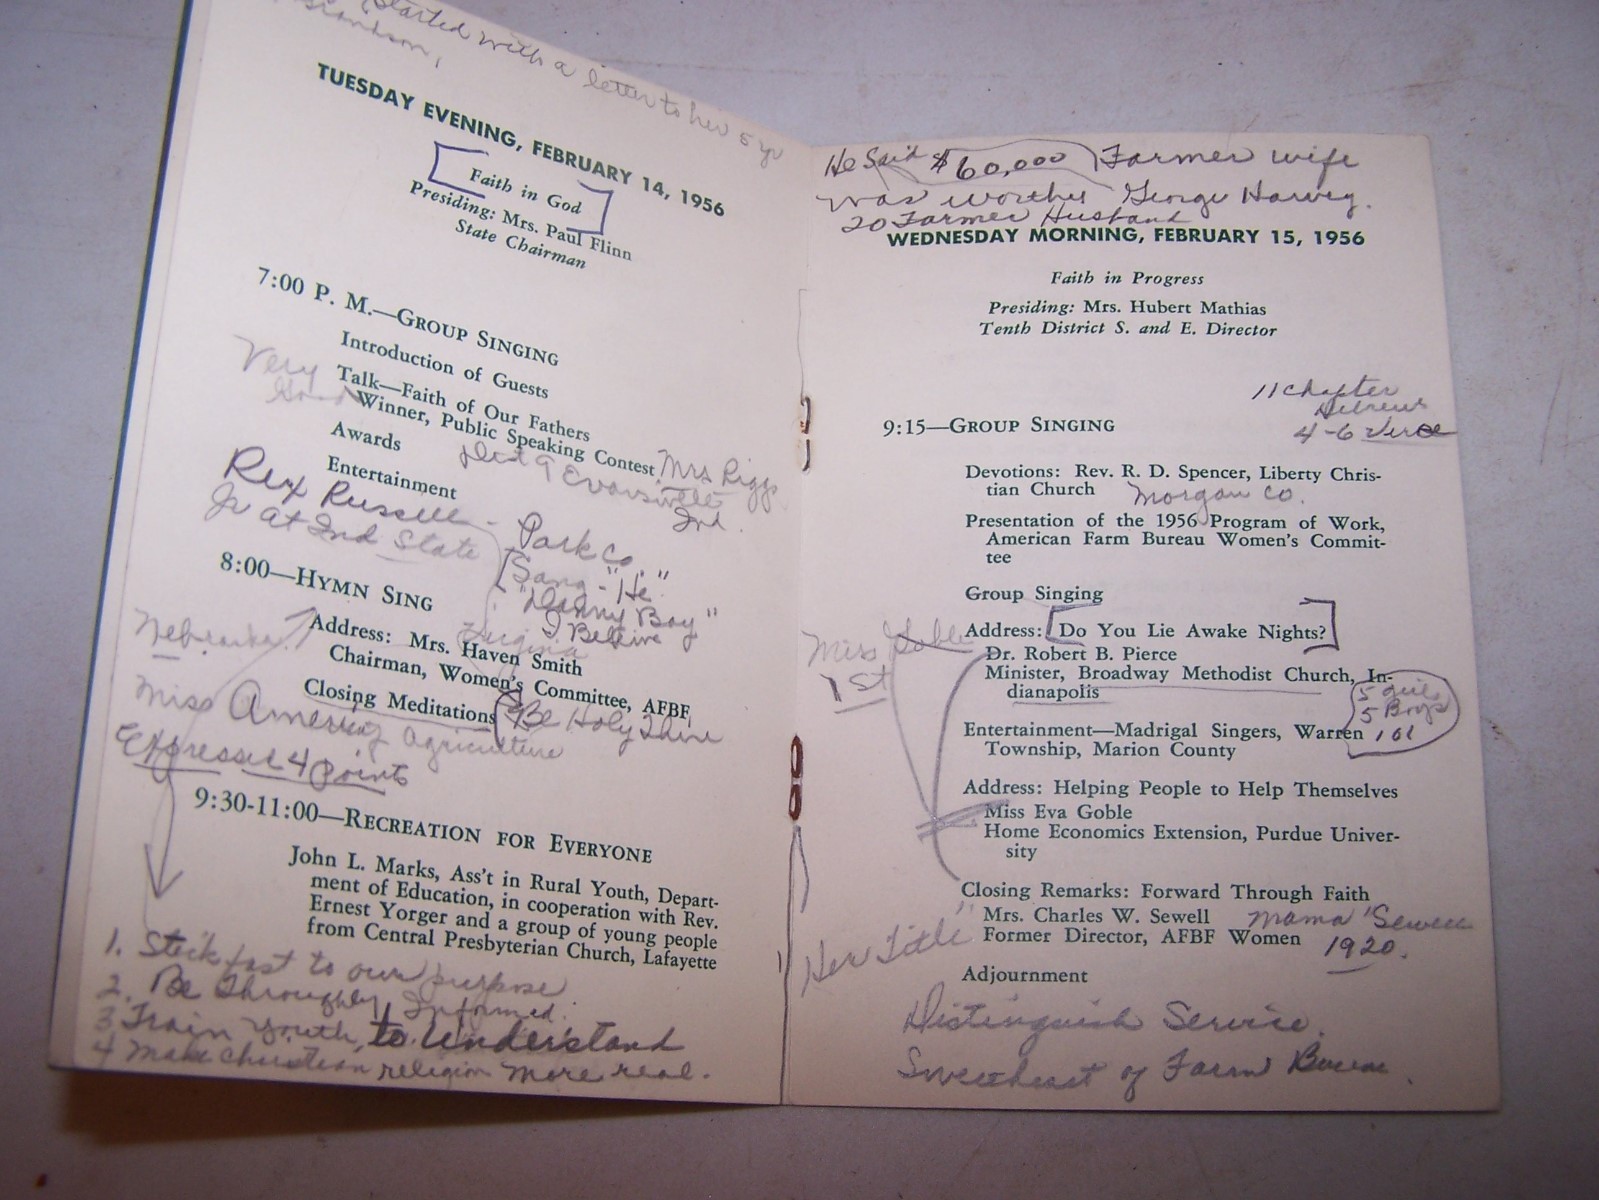 Started with a letter to her 5 yr
Grandson,
TUESDAY EVENING, FEBRUARY 14, 1956
Faith in God
Presiding: Mrs. Paul Flinn
State Chairman
7:00 P. M.—GROUP SINGING
Introduction of Guests
Very Good
Talk—Faith of Our Fathers
Winner, Public Speaking Contest Mrs Riggs
Dist 9 Evansville
Ind.
Awards
Entertainment
Rex Russell - Park Co.
Jr at Ind State
Sang - "He"
"Danny Boy"
I Believe
8:00—HYMN SING
Nebraska
Address: Mrs. Haven Smith
Chairman, Women's Committee, AFBF
Closing Meditations Be Holy Thine
Miss America of Agriculture
Expresses 4 Points
9:30-11:00—RECREATION FOR EVERYONE
John L. Marks, Ass't in Rural Youth, Depart-
ment of Education, in cooperation with Rev.
Ernest Yorger and a group of young people
from Central Presbyterian Church, Lafayette
1. Stick fast to our purpose
2. Be Throughly Informed.
3 Train youth, to Understand
4 Make christian religion more real.
He Said $60,000 Farmer wife
was worth George Harvey.
20 Farmer Husband
WEDNESDAY MORNING, FEBRUARY 15, 1956
Faith in Progress
Presiding: Mrs. Hubert Mathias
Tenth District S. and E. Director
11 Chapter
Hebrews
4-6 Verse
9:15—GROUP SINGING
Devotions: Rev. R. D. Spencer, Liberty Chris-
tian Church Morgan Co.
Presentation of the 1956 Program of Work,
American Farm Bureau Women's Commit-
tee
Group Singing
Miss Goble
1st
Address: Do You Lie Awake Nights?
Dr. Robert B. Pierce
Minister, Broadway Methodist Church, In-
dianapolis
5 girls
5 Boys
101
Entertainment—Madrigal Singers, Warren
Township, Marion County
Address: Helping People to Help Themselves
Miss Eva Goble
Home Economics Extension, Purdue Univer-
sity
Closing Remarks: Forward Through Faith
Mrs. Charles W. Sewell Mama "Sewell
Former Director, AFBF Women 1920.
Her Title"
Adjournment
Distinguish Service.
Sweetheart of Farm Bureau.